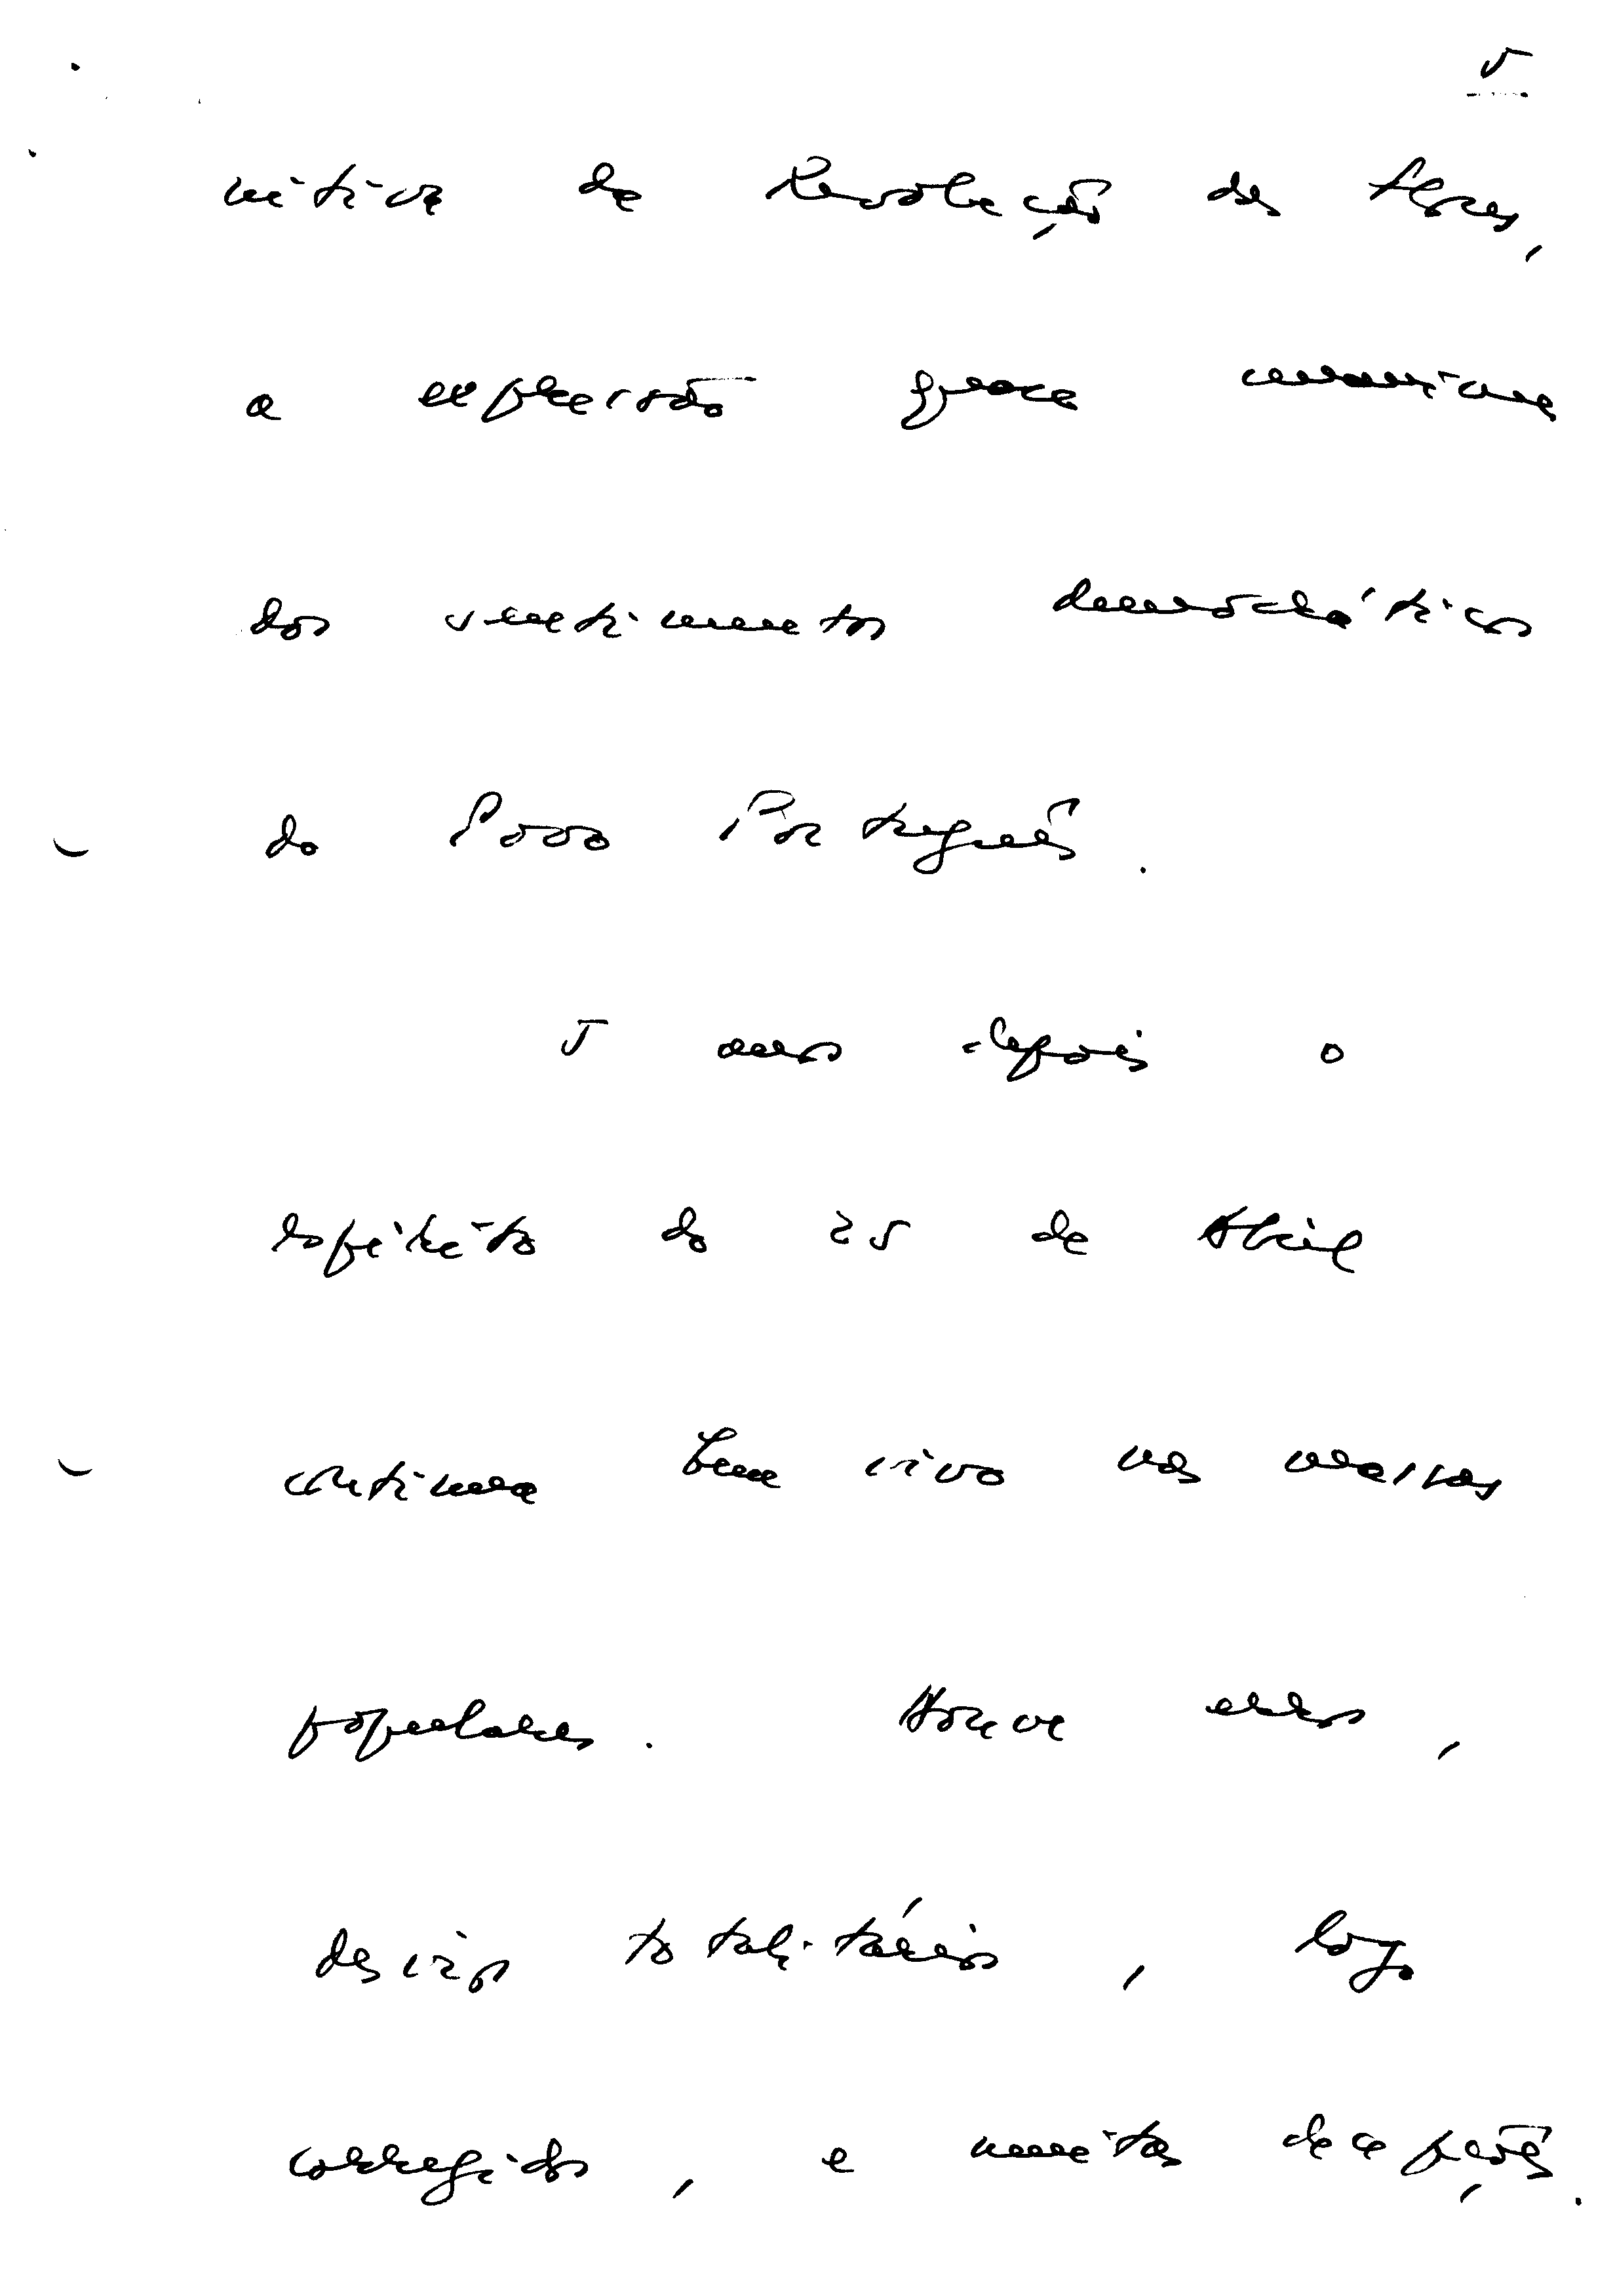 5
nitiva da Revolução das flores,
a expressão quase unânime
dos sentimentos democráticos
do Povo Português.
5 anos depois o
espírito do 25 de Abril
continua bem vivo nas massas
populares. Houve erros,
desvios totalitários, logo
corrigidos, e muitas decepções.